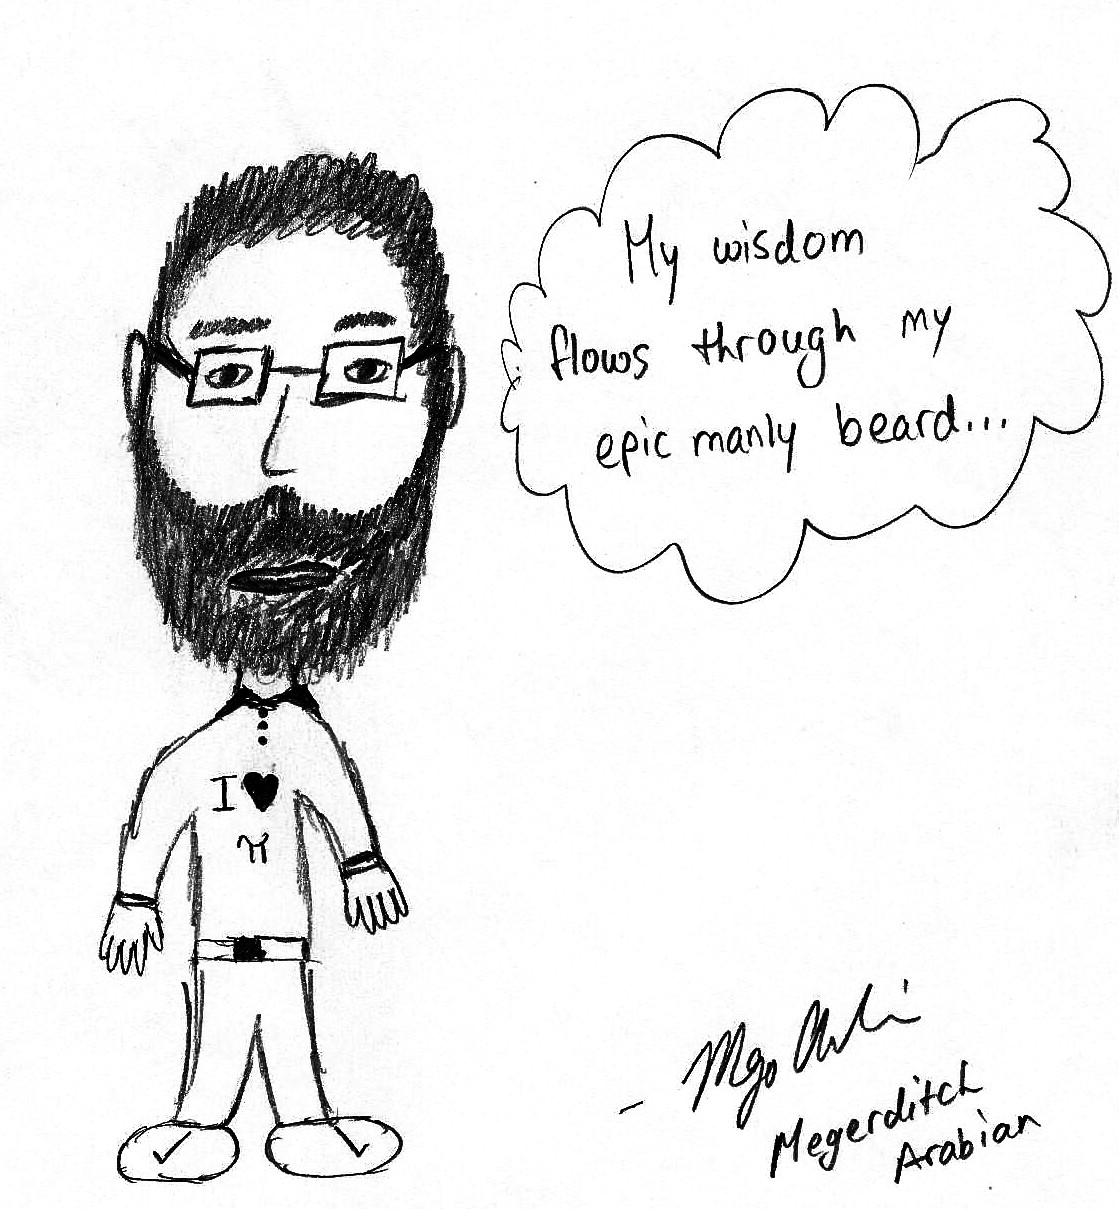 My wisdom
flows through my
epic manly beard...
I ♥
π
- Mgo
Megerditch
Arabian